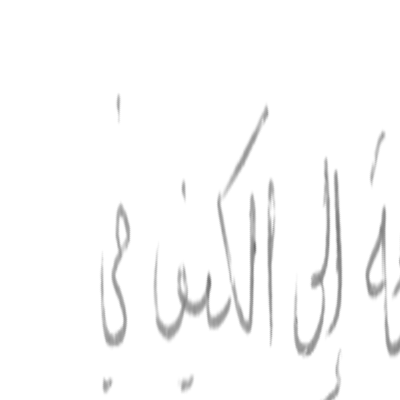 إلى الكيف في